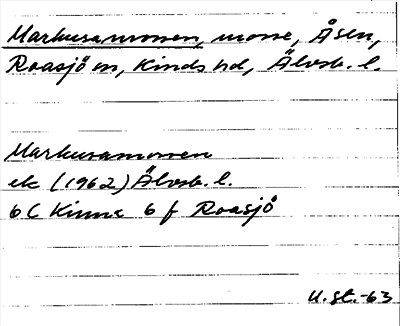 Markusamossen, mosse, Åsen,
Roasjö sn, Kinds hd, Älvsb. l.
Markusamossen
ek (1962) Älvsb. l.
6C Kinna 6 f Roasjö
U.st.-63